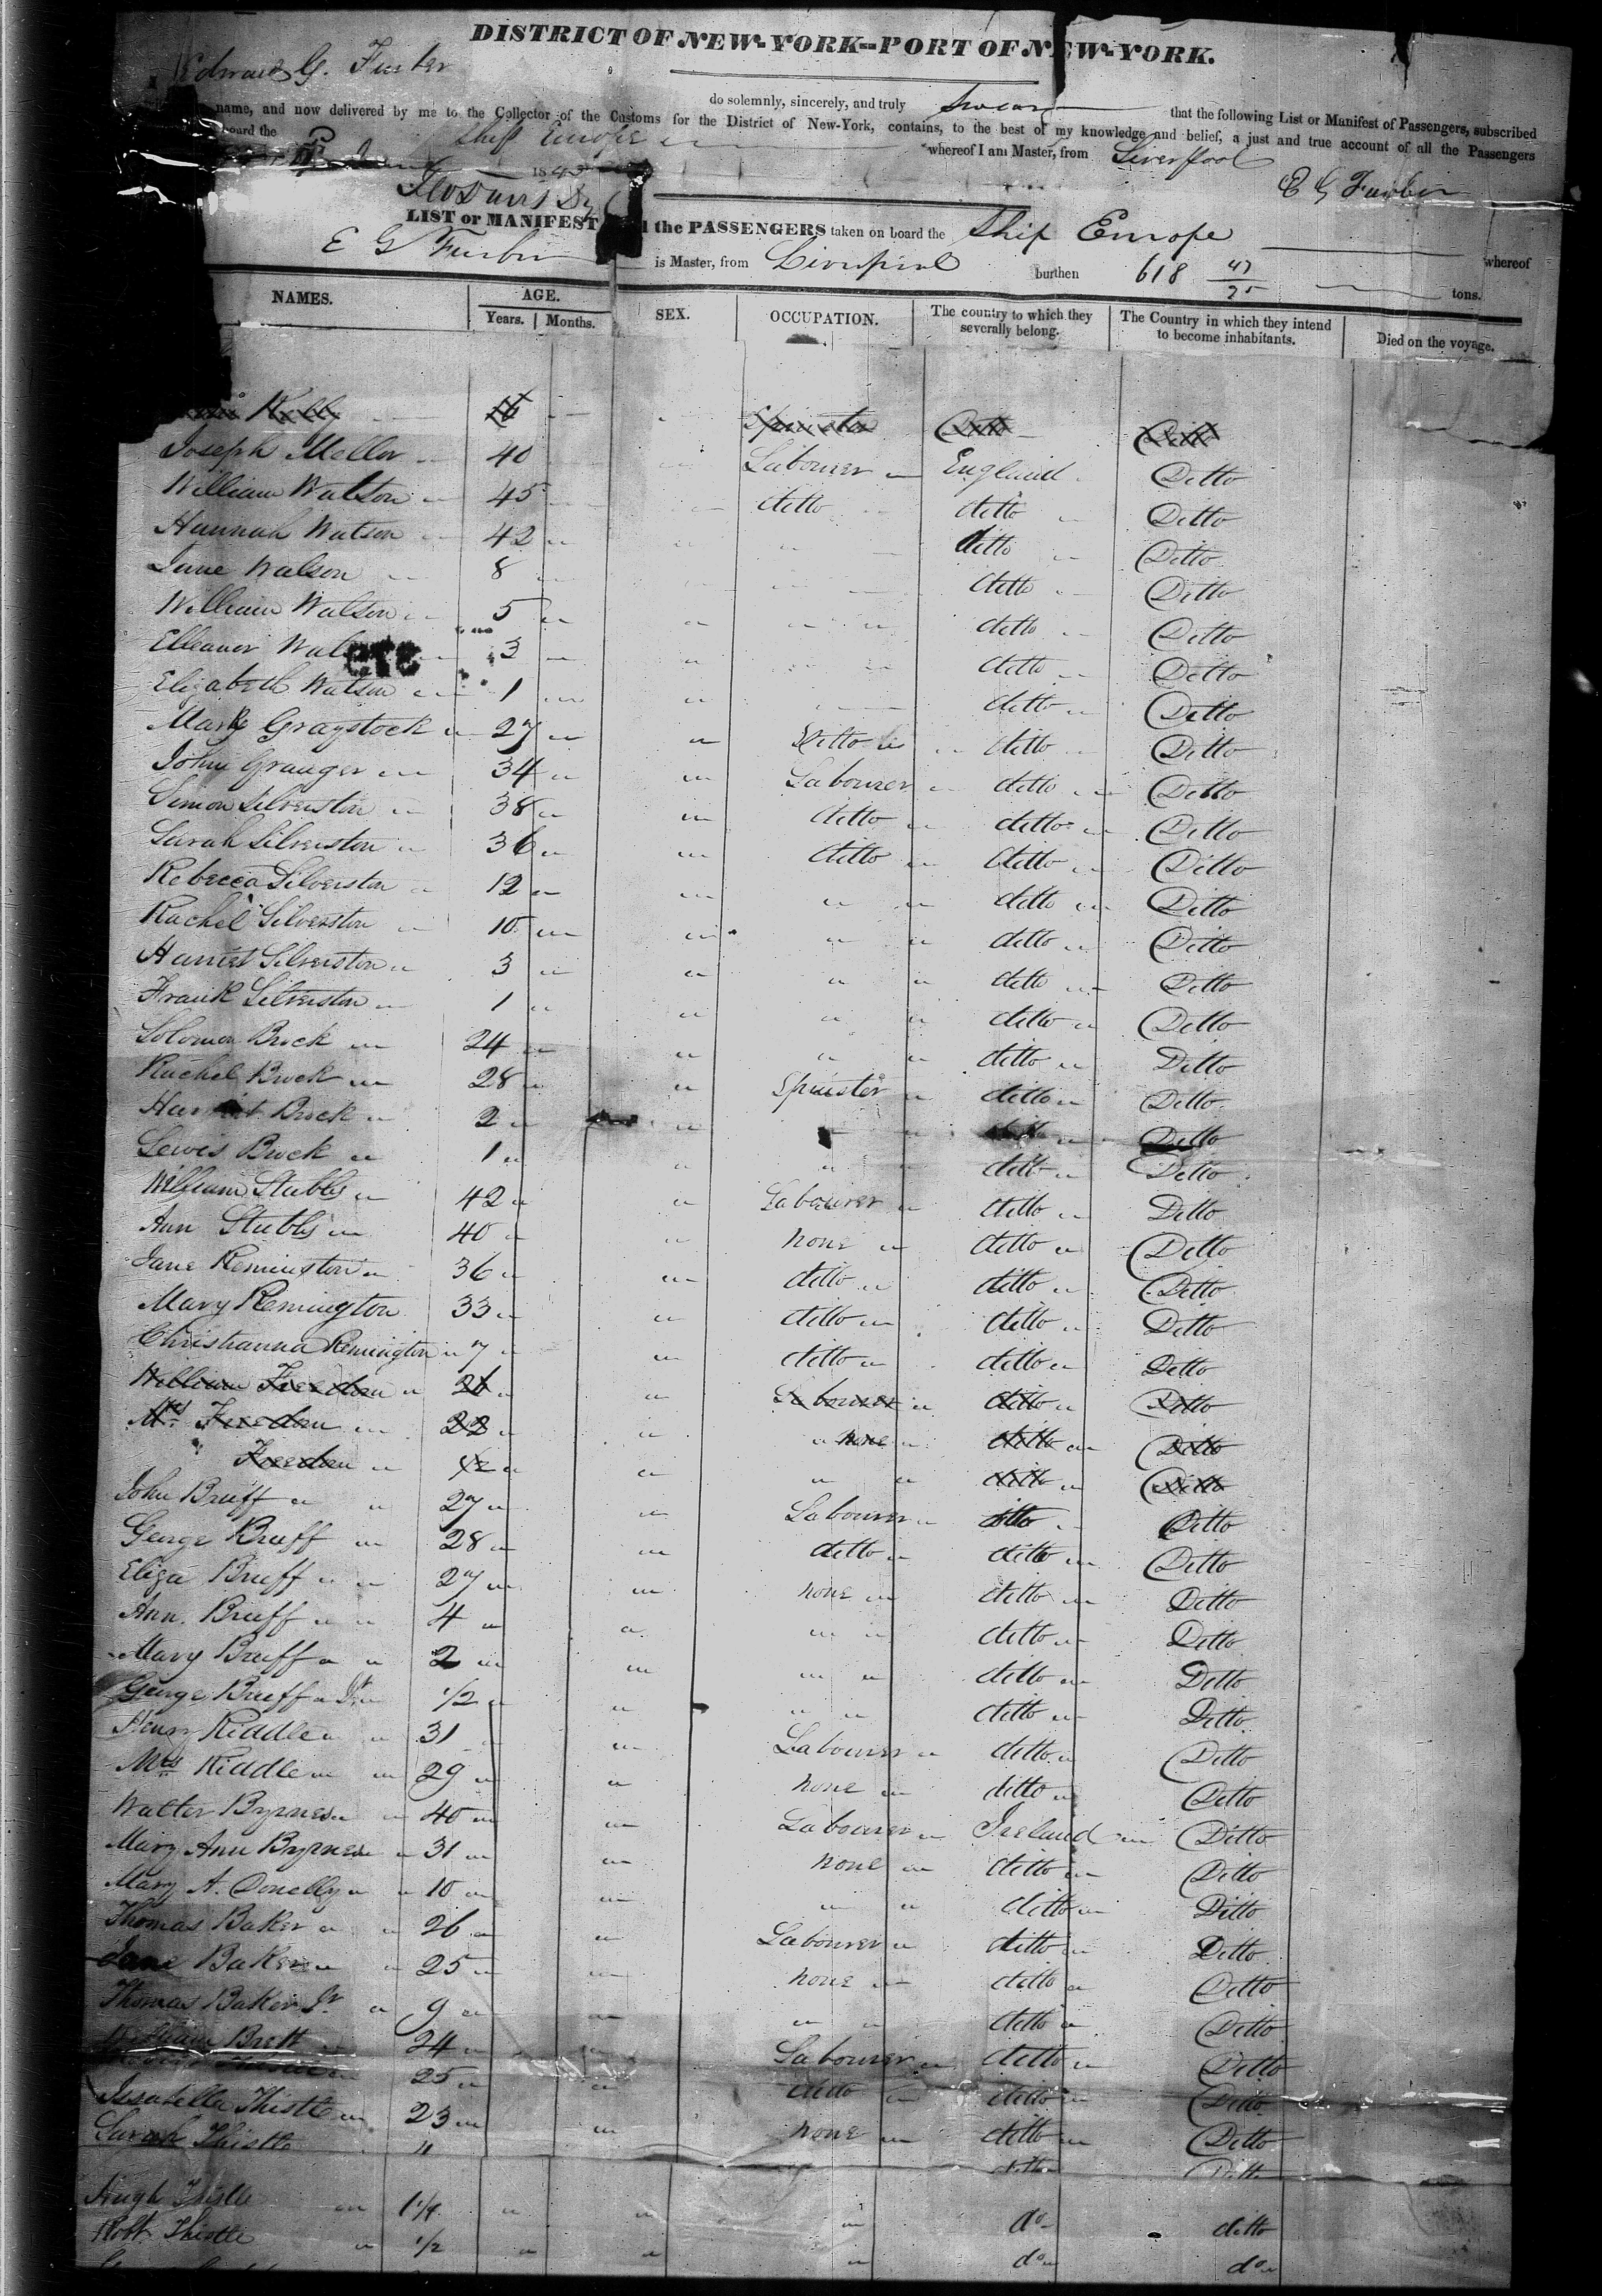 DISTRICT OF NEW-YORK--PORT OF NEW-YORK.
Edward G. Furber do solemnly, sincerely, and truly swear that the following List or Manifest of Passengers, subscribed
name, and now delivered by me to the Collector of the Customs for the District of New-York, contains, to the best of my knowledge and belief, a just and true account of all the Passengers
board the Ship Europe whereof I am Master, from Liverpool
184
E G Furber
LIST or MANIFEST the PASSENGERS taken on board the Ship Europe whereof
E G Furber is Master, from Liverpool burthen 618 47/25 tons.
NAMES. AGE. Years. Months. SEX. OCCUPATION. The country to which they severally belong. The Country in which they intend to become inhabitants. Died on the voyage.
Kelly 16 Spinster Ditto Ditto
Joseph Mellor 40 Labourer England Ditto
William Watson 45 ditto ditto Ditto
Hannah Watson 42 " ditto Ditto
Jane Watson 8 ditto Ditto
William Watson 5 " " ditto Ditto
Elleanor 3 " ditto Ditto
Elizabeth Watson 1 " ditto Ditto
Mark Graystock 27 " ditto Ditto
John Granger 34 " Labourer ditto Ditto
Simon Silverston 38 " ditto ditto Ditto
Sarah Silverston 36 " ditto ditto Ditto
Rebecca Silverston 12 " " ditto Ditto
Rachel Silverston 10 " " ditto Ditto
Harriet Silverston 3 " " ditto Ditto
Frank Silverston 1 " " ditto Ditto
Solomon Brock 24 " " ditto Ditto
Rachel Brock 28 " Spinster ditto Ditto
Harriet Brock 2 " ditto Ditto
Lewis Brock 1 " " ditto Ditto
William Stubbs 42 " Labourer ditto Ditto
Ann Stubbs 40 " none ditto Ditto
Jane Remington 36 " ditto ditto Ditto
Mary Remington 33 " ditto ditto Ditto
Christianna Remington 7 " ditto ditto Ditto
William Freedan 26 " Labourer ditto Ditto
Mrs Freedan 22 " none ditto Ditto
Freedan " " ditto Ditto
John Bruff 27 " Labourer ditto Ditto
George Bruff 28 " ditto ditto Ditto
Eliza Bruff 27 " none ditto Ditto
Ann. Bruff 4 " " ditto Ditto
Mary Bruff 2 " " ditto Ditto
George Bruff Jr 1/2 " " ditto Ditto
Henry Riddle 31 " Labourer ditto Ditto
Mrs Riddle 29 " none ditto Ditto
Walter Byrnes 40 " Labourer Ireland Ditto
Mary Ann Byrnes 31 " none ditto Ditto
Mary A. Donelly 10 " " ditto Ditto
Thomas Baker 26 " Labourer ditto Ditto
Jane Baker 25 " none ditto Ditto
Thomas Baker Jr 9 " " ditto Ditto
William Brett 24 Labourer ditto Ditto
25 " ditto ditto Ditto
Issabella Thistle 23 " none ditto Ditto
Sarah Thistle " ditto Ditto
Hugh Thistle 1 1/4 " " " do ditto
Robt Thistle 1/2 " " " do do